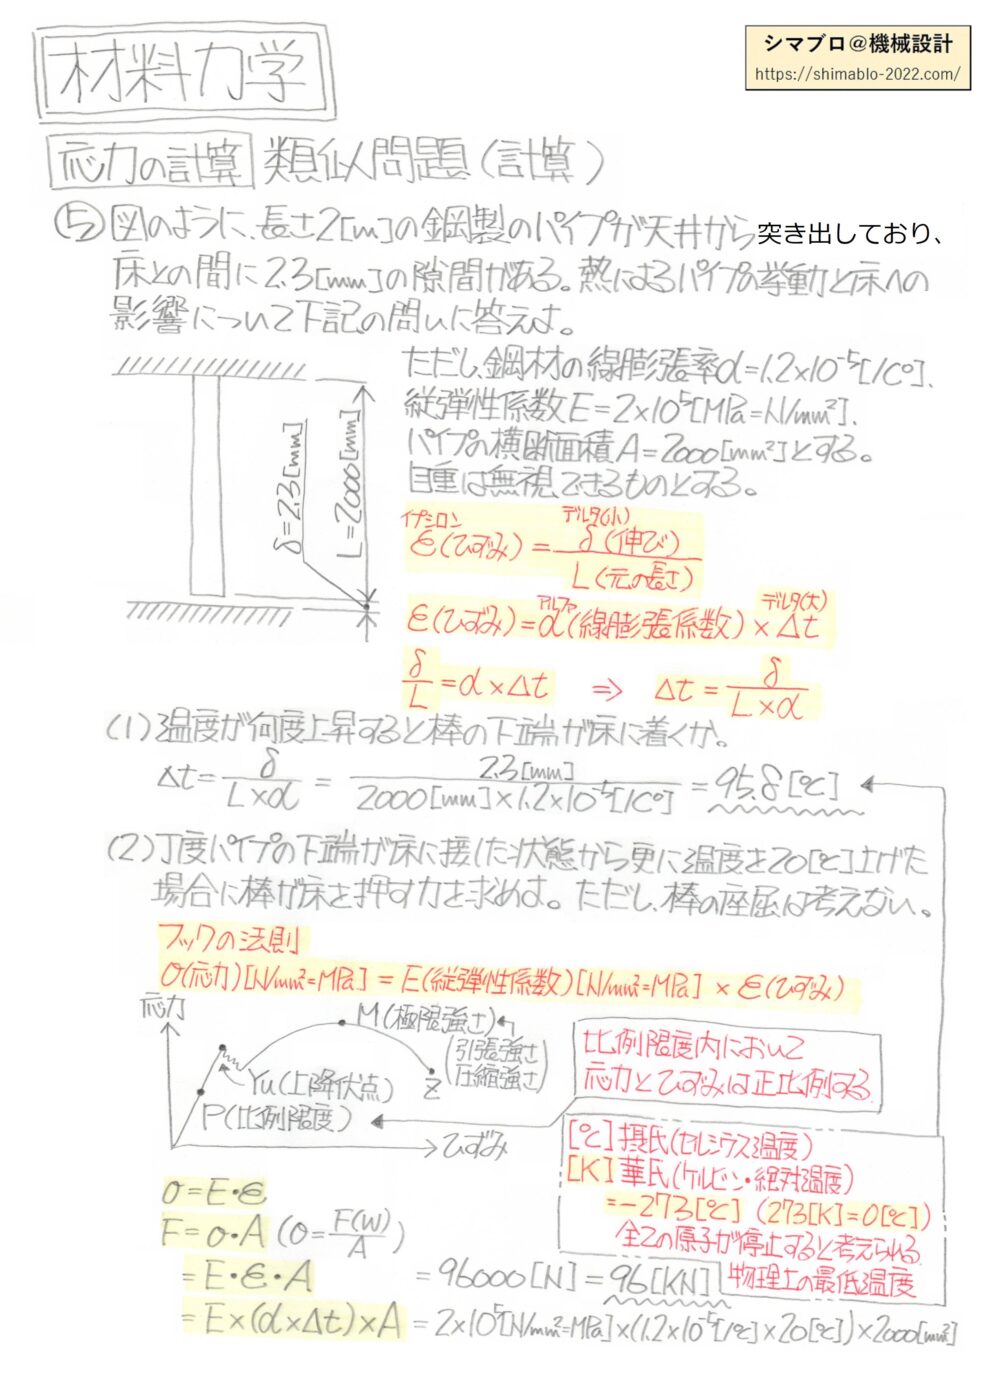 材料力学
シマブロ@機械設計
https://shimablo-2022.com/
応力の計算 類似問題(計算)
⑤図のように、長さ2[m]の鋼製のパイプが天井から突き出しており、
床との間に2.3[mm]の隙間がある。熱によるパイプの挙動と床への
影響について下記の問いに答えよ。
ただし、鋼材の線膨張率α=1.2×10⁻⁵[1/C°]、
縦弾性係数E=2×10⁵[MPa=N/mm²]、
パイプの横断面積A=2000[mm²]とする。
自重は無視できるものとする。
δ=2.3[mm]
L=2000[mm]
イプシロン デルタ(小)
ε(ひずみ)=δ(伸び)/L(元の長さ)
アルファ デルタ(大)
ε(ひずみ)=α(線膨張係数)×Δt
δ/L=α×Δt ⇒ Δt=δ/L×α
(1)温度が何度上昇すると棒の下端が床に着くか。
Δt=δ/L×α=2.3[mm]/2000[mm]×1.2×10⁻⁵[1/C°]=95.8[℃]
(2)丁度パイプの下端が床に接した状態から更に温度を20[℃]上げた
場合に棒が床を押す力を求めよ。ただし、棒の座屈は考えない。
フックの法則
σ(応力)[N/mm²=MPa]=E(縦弾性係数)[N/mm²=MPa]×ε(ひずみ)
応力
M(極限強さ)
(引張強さ
圧縮強さ)
Yu(上降伏点)
Z
P(比例限度)
ひずみ
比例限度内において
応力とひずみは正比例する
[℃]摂氏(セルシウス温度)
[K]華氏(ケルビン・絶対温度)
=-273[℃](273[K]=0[℃])
全ての原子が停止すると考えられる
物理上の最低温度
σ=E・ε
F=σ・A(σ=F(W)/A)
=E・ε・A =96000[N]=96[KN]
=E×(α×Δt)×A=2×10⁵[N/mm²=MPa]×(1.2×10⁻⁵[1/℃]×20[℃])×2000[mm²]